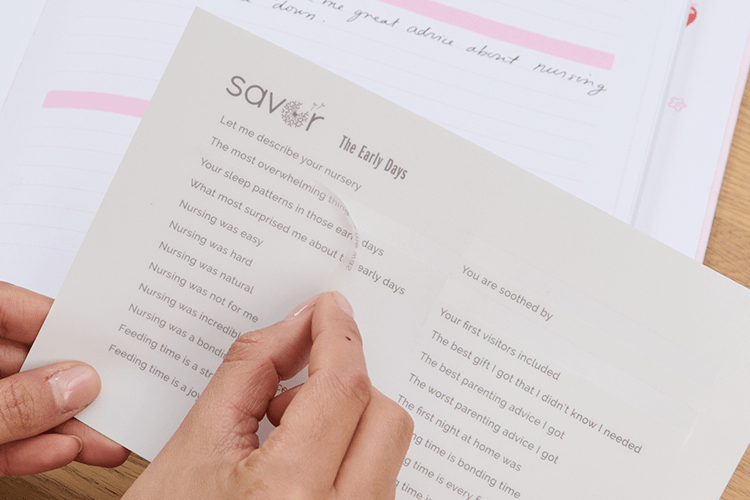 me great advice about nursing
down.
savor
The Early Days
Let me describe your nursery
The most overwhelming thing
Your sleep patterns in those early days
What most surprised me about the early days
Nursing was easy
Nursing was hard
Nursing was natural
Nursing was not for me
Nursing was incredibl
Nursing was a bondi
Feeding time is a str
Feeding time is a jo
You are soothed by
Your first visitors included
The best gift I got that I didn't know I needed
The best parenting advice I got
The worst parenting advice I got
The first night at home was
ng time is bonding time
time is every f
time is